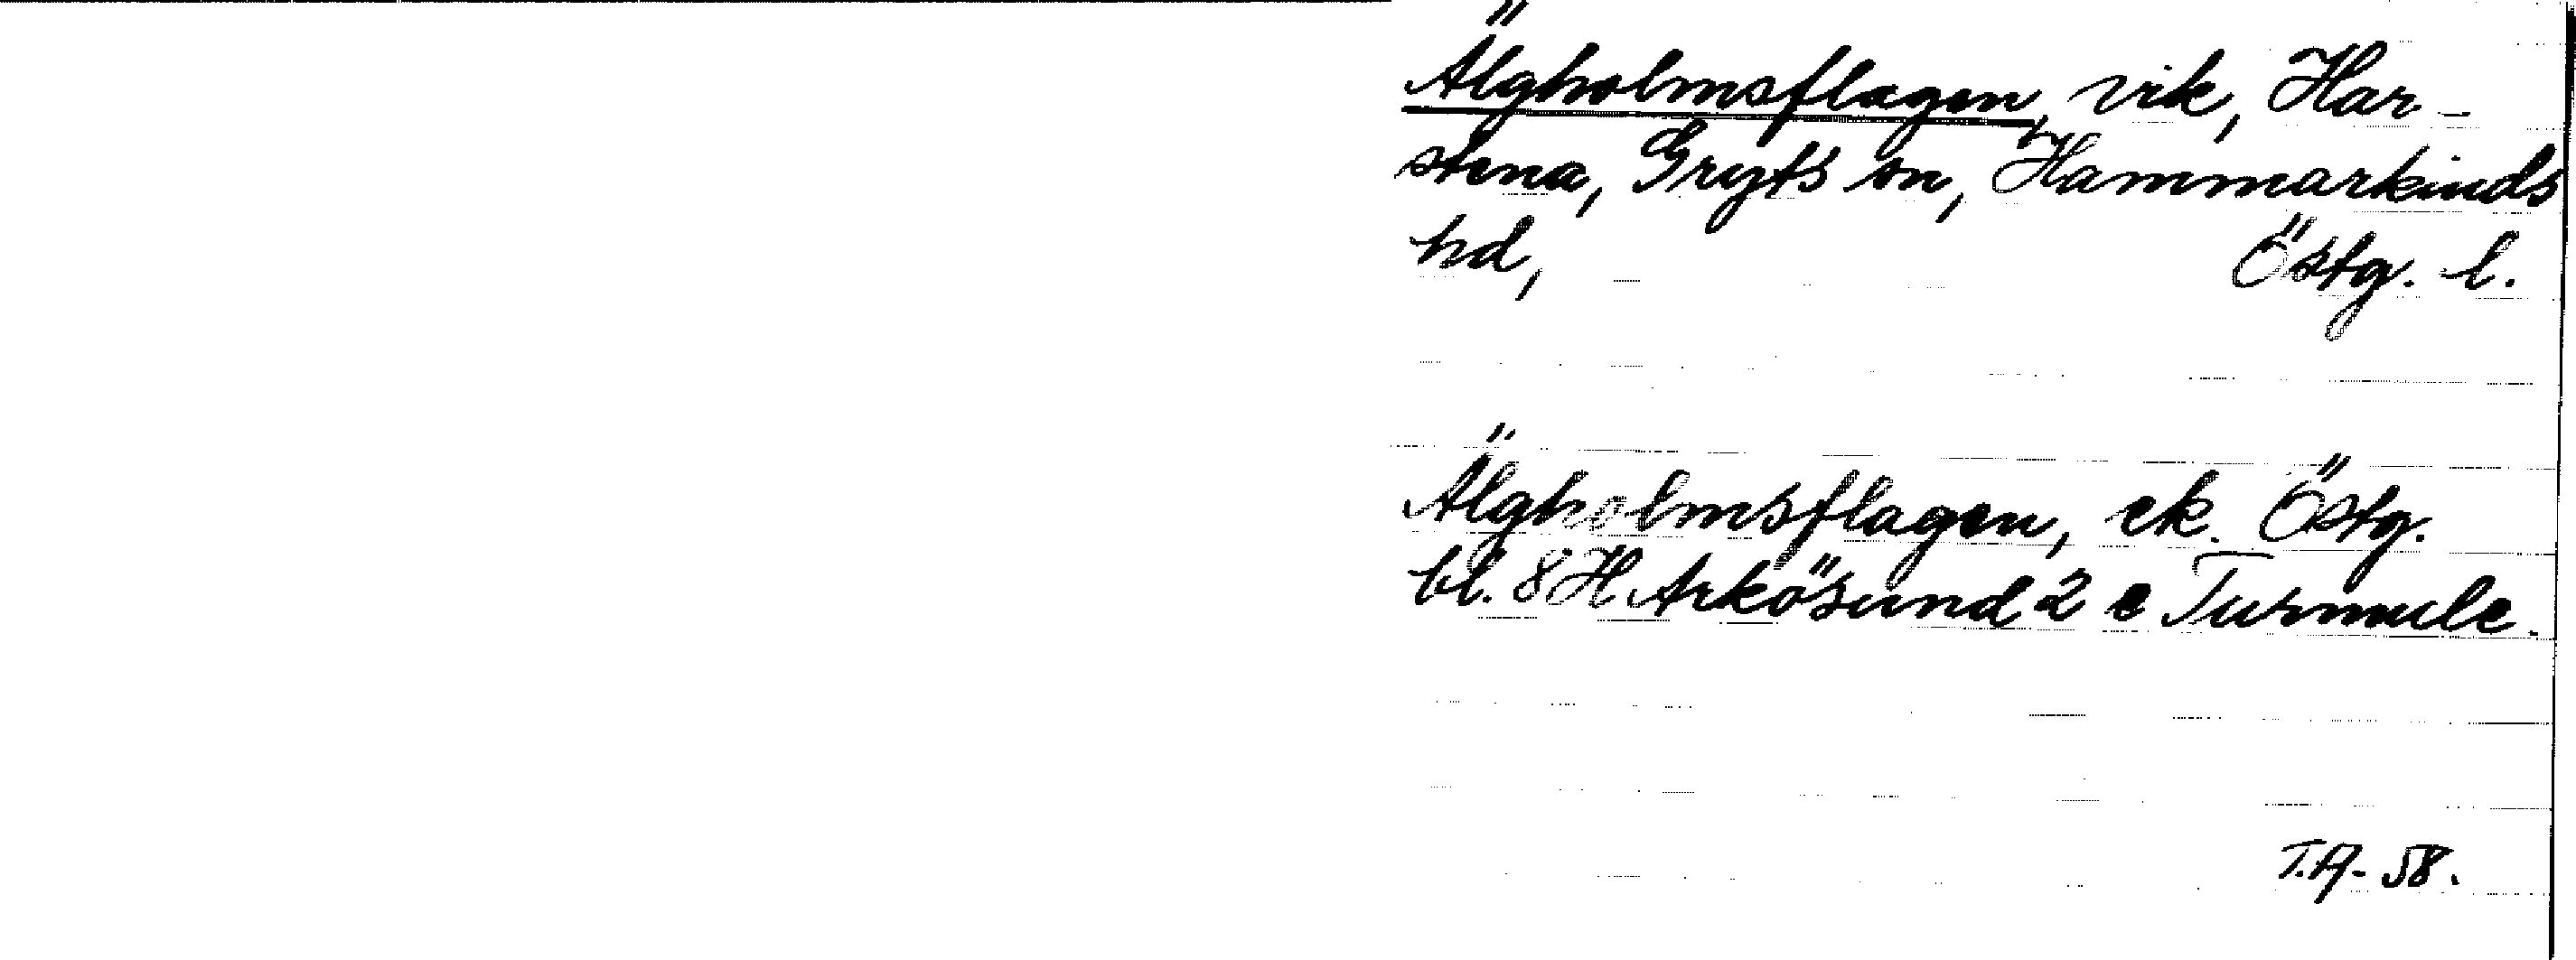 Älgholmsflagen, vik, Har-
stena, Gryts sn, Hammarkinds
hd, Östg. l.
Älgholmsflagen, ek. Östg.
bl. 8 H Arkösund 2 e Turmule.
T.A. 58.